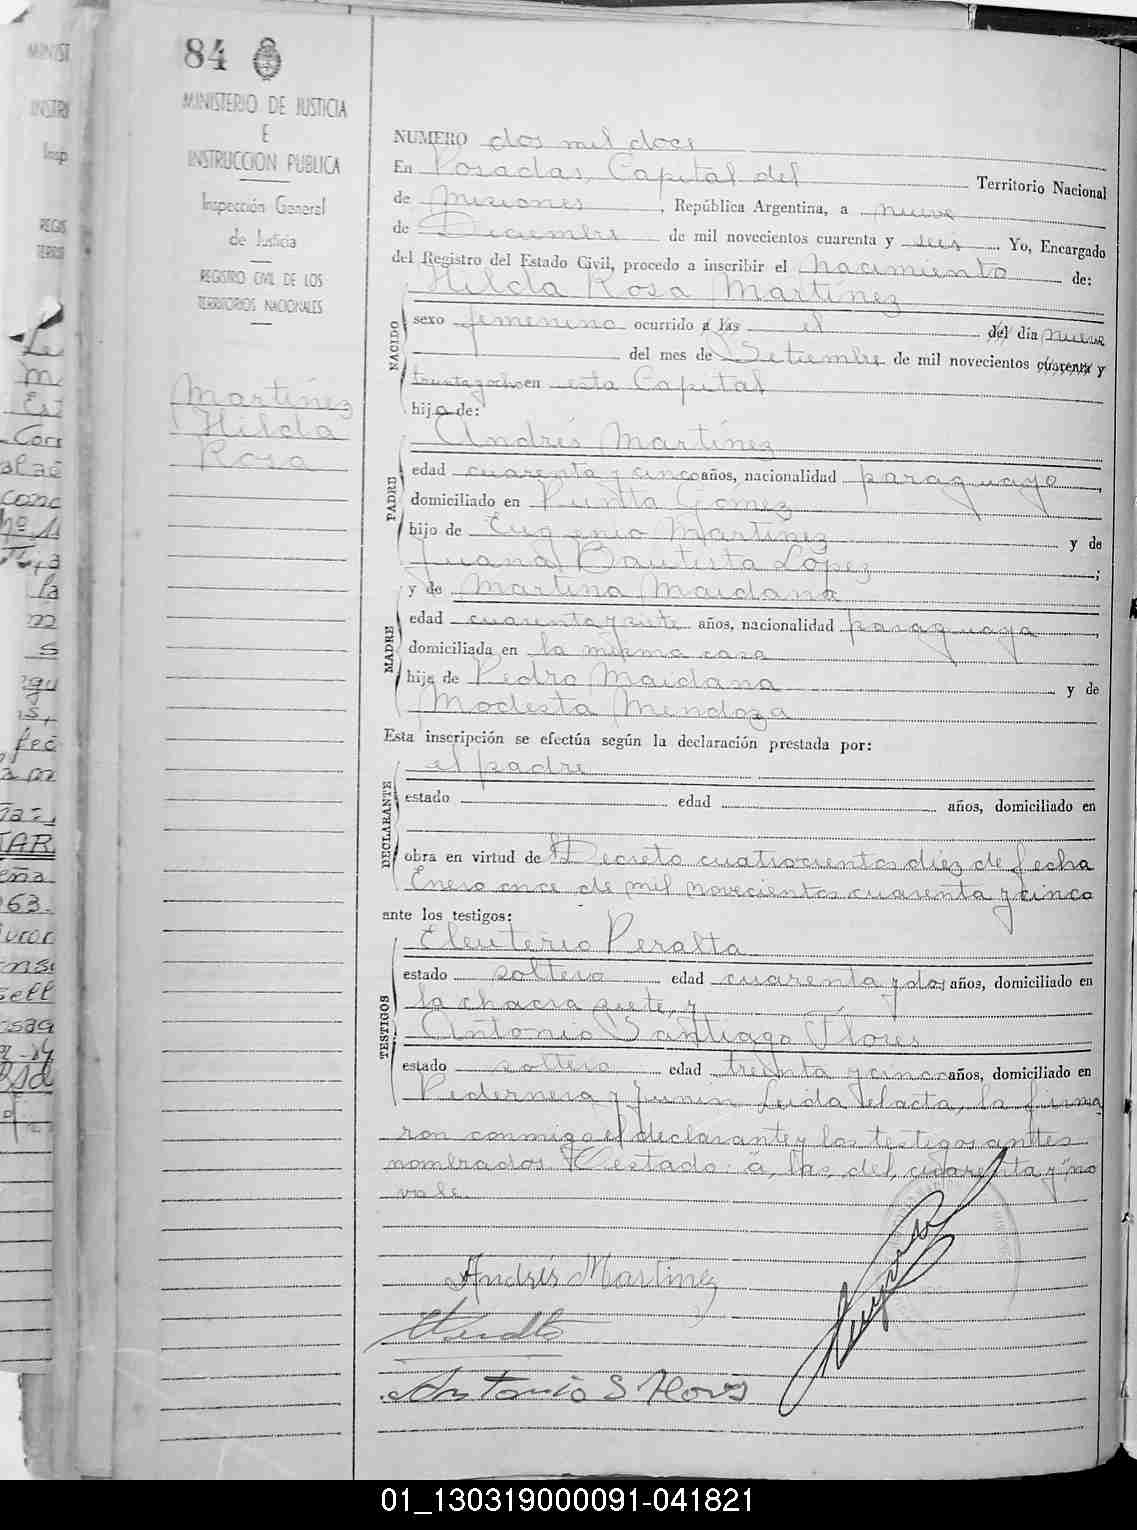 84
MINISTERIO DE JUSTICIA
E
INSTRUCCION PUBLICA
Inspección General
de Justicia
REGISTRO CIVIL DE LOS
TERRITORIOS NACIONALES
Martínez
Hilda
Rosa
NUMERO dos mil doce
En Posadas, Capital del Territorio Nacional
de Misiones, República Argentina, a nueve
de Diciembre de mil novecientos cuarenta y seis Yo, Encargado
del Registro del Estado Civil, procedo a inscribir el nacimiento de:
Hilda Rosa Martínez
NACIDO
sexo femenino ocurrido a las el del día nueve
del mes de Setiembre de mil novecientos cuarenta y
treinta y ocho en esta Capital
hija de:
Andrés Martínez
PADRE
edad cuarenta y cinco años, nacionalidad paraguayo,
domiciliado en Punta Gómez
hijo de Eugenio Martínez y de
Juana Bautista López;
y de Martina Maidana
MADRE
edad cuarenta y siete años, nacionalidad paraguaya,
domiciliada en la misma casa
hija de Pedro Maidana y de
Modesta Mendoza
Esta inscripción se efectúa según la declaración prestada por:
el padre
DECLARANTE
estado edad años, domiciliado en
obra en virtud de Decreto cuatrocientos diez de fecha
Enero once de mil novecientos cuarenta y cinco
ante los testigos:
Eleuterio Peralta
TESTIGOS
estado soltero edad cuarenta y dos años, domiciliado en
la chacra siete, y
Antonio Santiago Flores
estado soltero edad treinta y cinco años, domiciliado en
Pedernera y Junin Leida el acta, la firma
ron conmigo el declarante y los testigos antes
nombrados Testado: a, las, del, cuarenta y "no
vale.
Andrés Martinez
Antonio S Flores
01_130319000091-041821